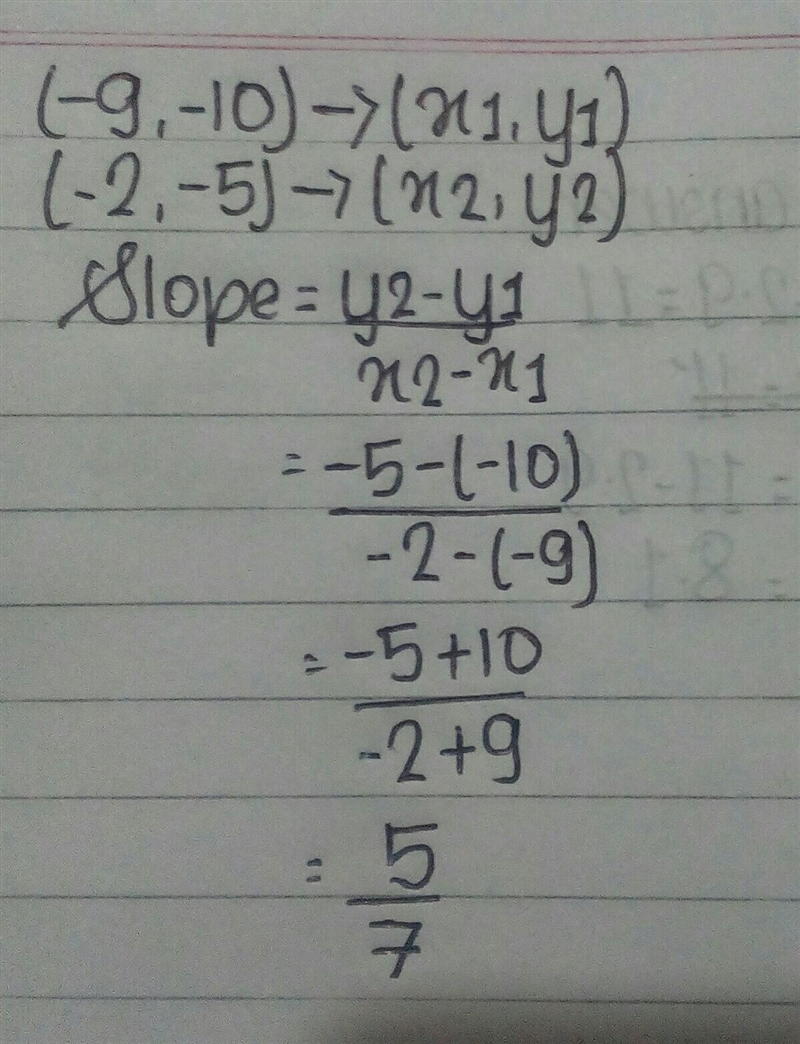 (-9, -10) → (x1, y1)
(-2, -5) → (x2, y2)
Slope = y2 - y1
x2 - x1
= -5 - (-10)
-2 - (-9)
= -5 + 10
-2 + 9
= 5
7